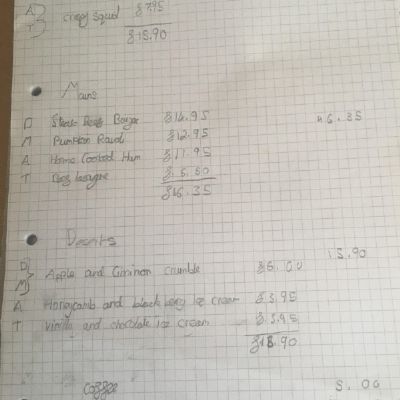 A
T crispy squid £7.95
£15.90
Mains
D Steak Beef Burger £16.95 46.35
M Pumpkin Ravioli £12.95
A Home Cooked Ham £11.95
T Veg lasagne £5.50
£46.35
Deserts
D 15.90
M Apple and Cininon crumble £6.00
A Honeycomb and black berry ice cream £3.95
T Vinilla and chocolate ice cream £3.95
£13.90
Coffee 5.00